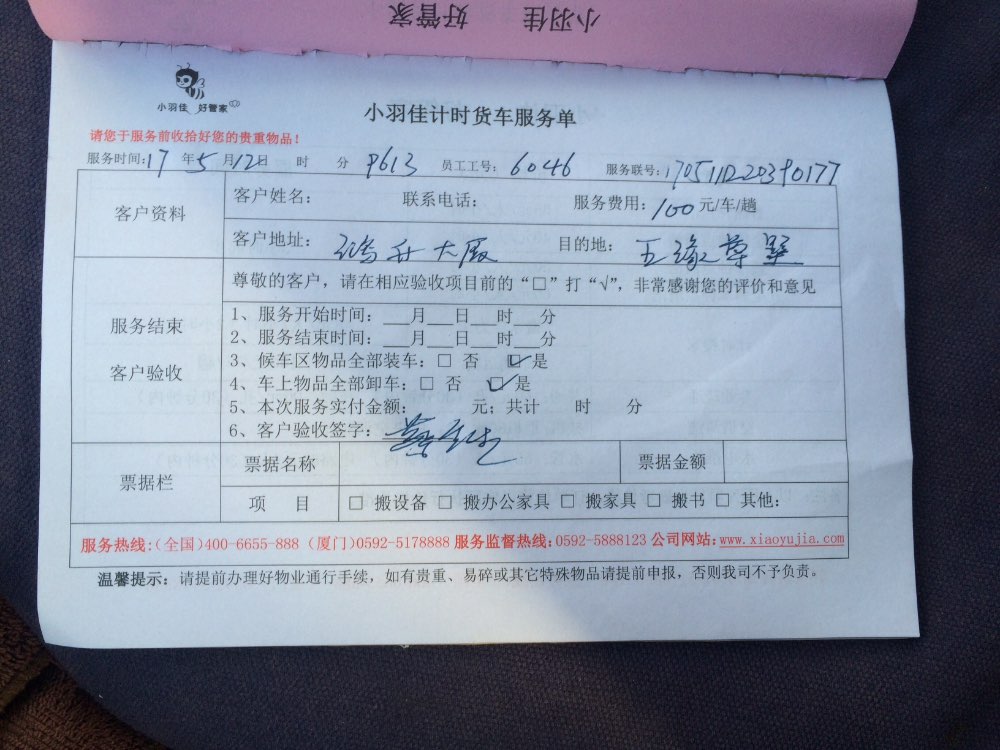 小羽佳 好管家
小羽佳 好管家
小羽佳计时货车服务单
请您于服务前收拾好您的贵重物品！
服务时间：17 年 5 月 12 日 时 分 P613 员工工号：6046 服务联号：
客户资料
客户姓名： 联系电话： 服务费用：100 元/车/趟
客户地址：鸿升大厦 目的地：五缘尊墅
服务结束
客户验收
尊敬的客户，请在相应验收项目前的“□”打“√”，非常感谢您的评价和意见
1、服务开始时间：___月___日___时___分
2、服务结束时间：___月___日___时___分
3、候车区物品全部装车：□ 否 ☑ 是
4、车上物品全部卸车：□ 否 ☑ 是
5、本次服务实付金额： 元；共计 时 分
6、客户验收签字：
票据栏
票据名称 票据金额
项 目 □ 搬设备 □ 搬办公家具 □ 搬家具 □ 搬书 □ 其他：
服务热线:(全国)400-6655-888 (厦门)0592-5178888 服务监督热线:0592-5888123 公司网站:www.xiaoyujia.com
温馨提示：请提前办理好物业通行手续，如有贵重、易碎或其它特殊物品请提前申报，否则我司不予负责。